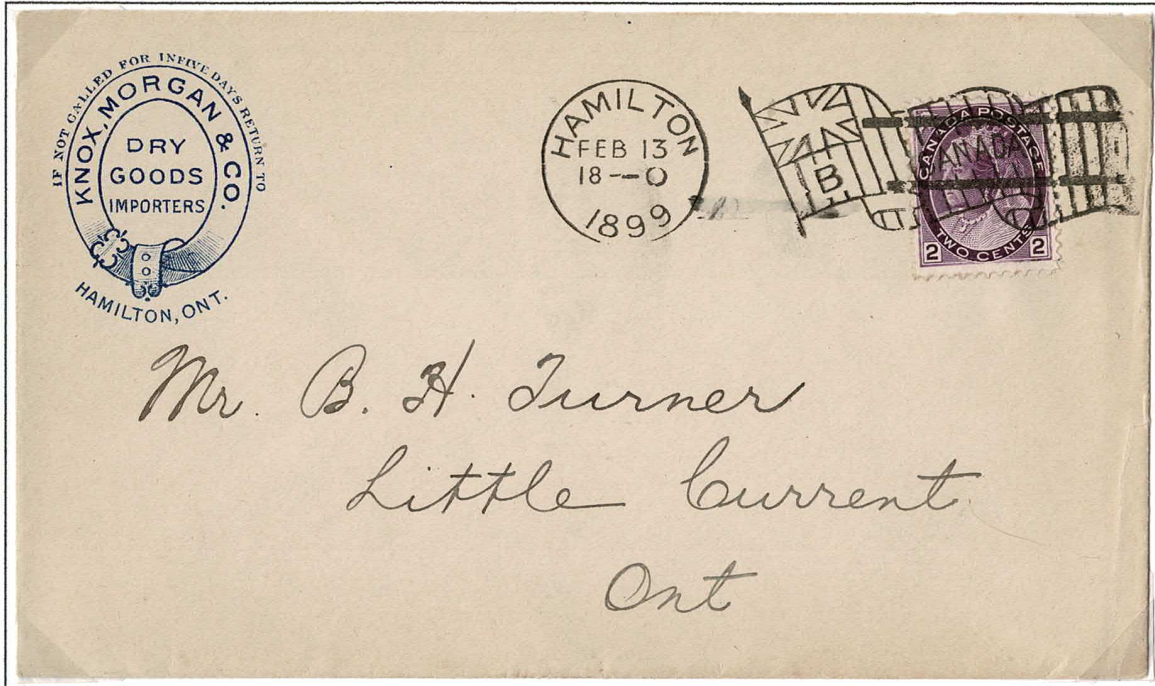 IF NOT CALLED FOR IN FIVE DAYS RETURN TO
KNOX, MORGAN & CO.
DRY
GOODS
IMPORTERS
HAMILTON, ONT.
HAMILTON
FEB 13
18--0
1899
B.
CANADA
CANADA POSTAGE
2 TWO CENTS 2
Mr. B. H. Turner
Little Current
Ont